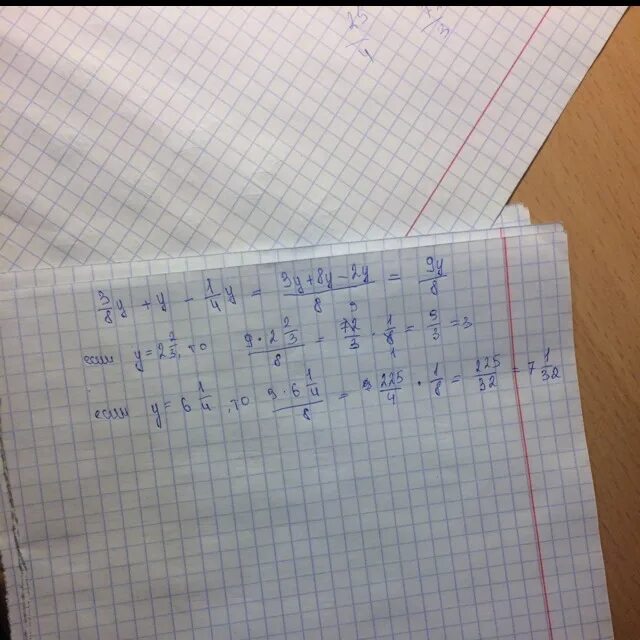 25/4
3/8 y + y - 1/4 y = (3y + 8y - 2y)/8 = 9y/8
если y = 2 2/3, то (9 · 2 2/3)/8 = 72/3 · 1/8 = 9/3 = 3
если y = 6 1/4, то (9 · 6 1/4)/8 = 225/4 · 1/8 = 225/32 = 7 1/32